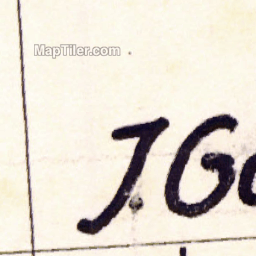 MapTiler.com
J.G